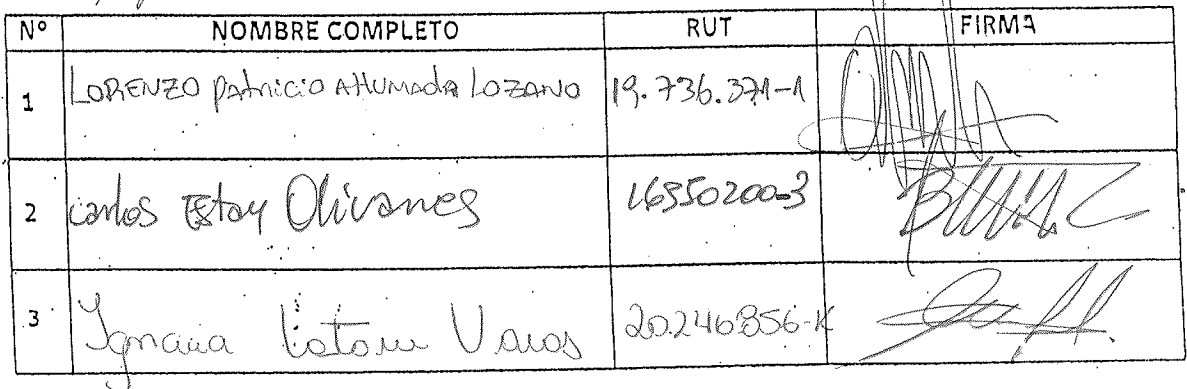 Nº NOMBRE COMPLETO RUT FIRMA
1 LORENZO Patricio AHUMADA LOZANO 19.736.371-1
2 Carlos Estay Olivares 16550200-3
3 Ignacia 20.240856-K